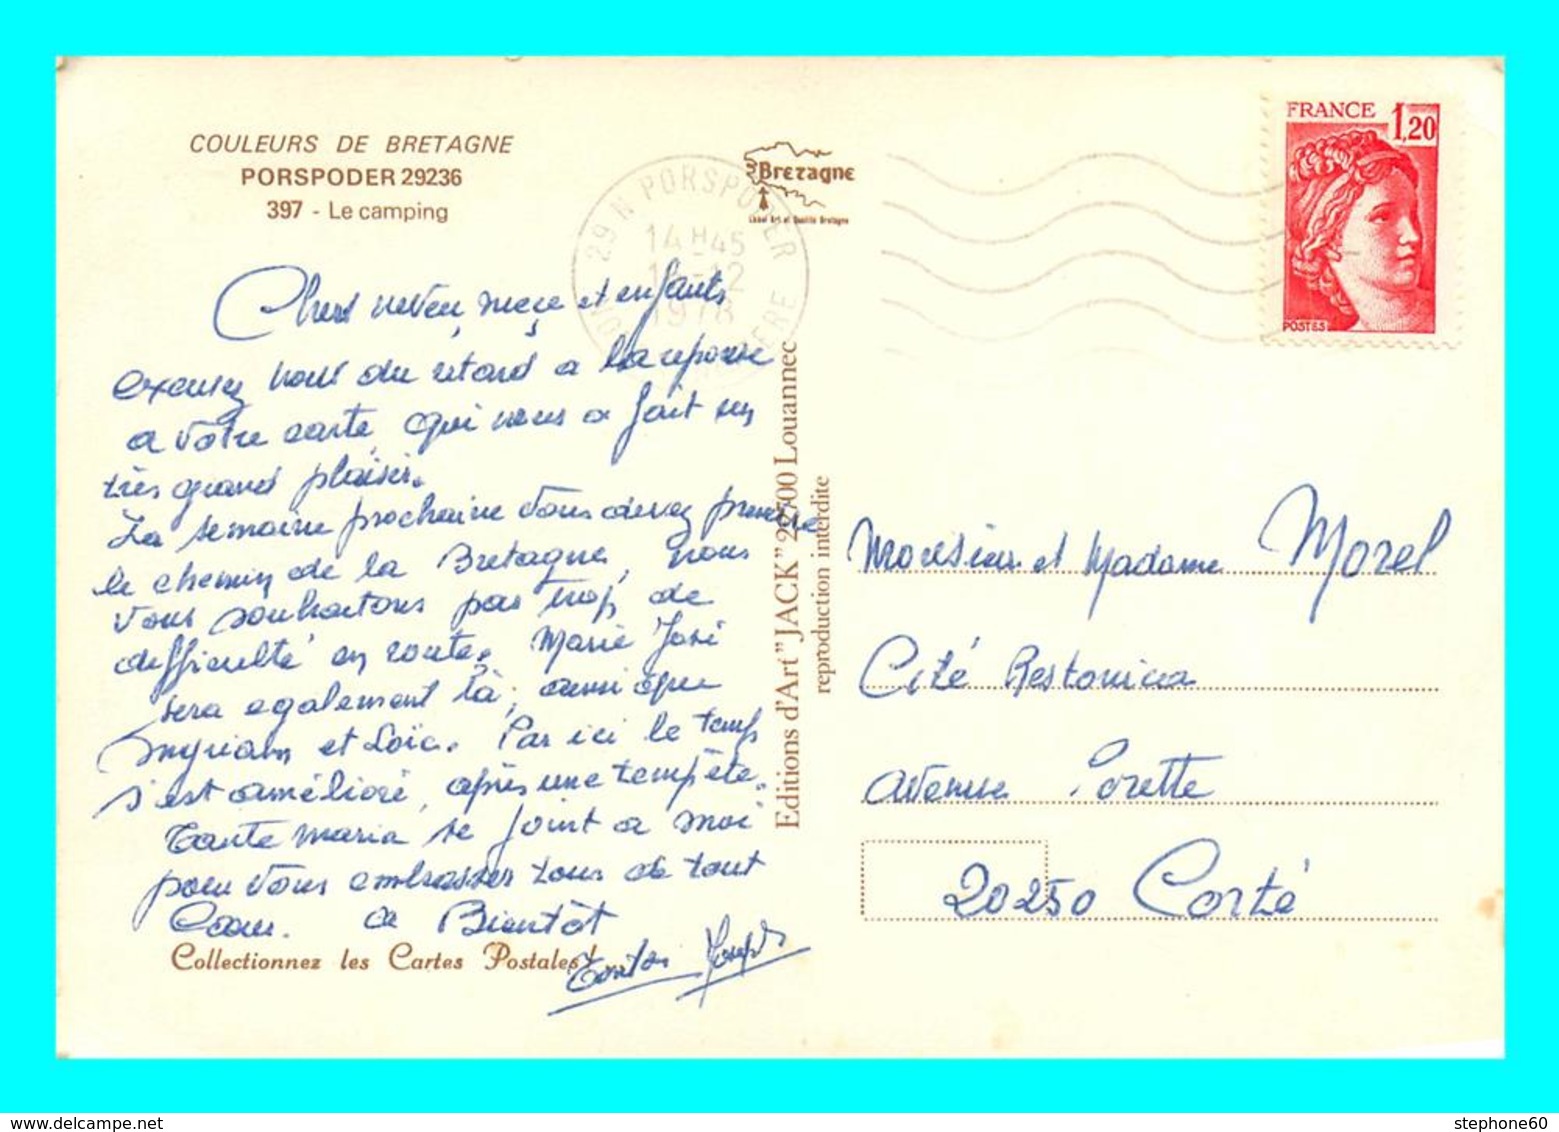 COULEURS DE BRETAGNE
PORSPODER 29236
397 - Le camping
Chers neveu, nièce et enfants
excusez nous du retard a la reponse
a votre carte, qui nous a fait un
très grand plaisir.
La semaine prochaine vous devez prendre
le chemin de la Bretagne, nous
vous souhaitons pas trop de
difficulté en route. Marie José
sera egalement là, ainsi que
Myriam et Loïc. Par ici le temps
s'est amélioré, après une tempête.
Tante Maria se joint a moi
pour vous embrasser tous de tout
Coeur. a Bientôt
Tonton Joseph
Collectionnez les Cartes Postales!
29 N PORSPODER
14 H 45
-12
1978
Bretagne
Label Art et Qualité Bretagne
Editions d'Art "JACK" 22700 Louannec
reproduction interdite
FRANCE 1,20
POSTES
Monsieur et Madame Morel
Cité Restonica
avenue Porette
20250 Corté
stephone60